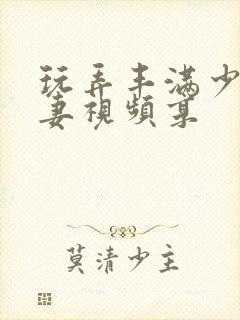 玩弄丰满少
妻視頻草
莫清少主